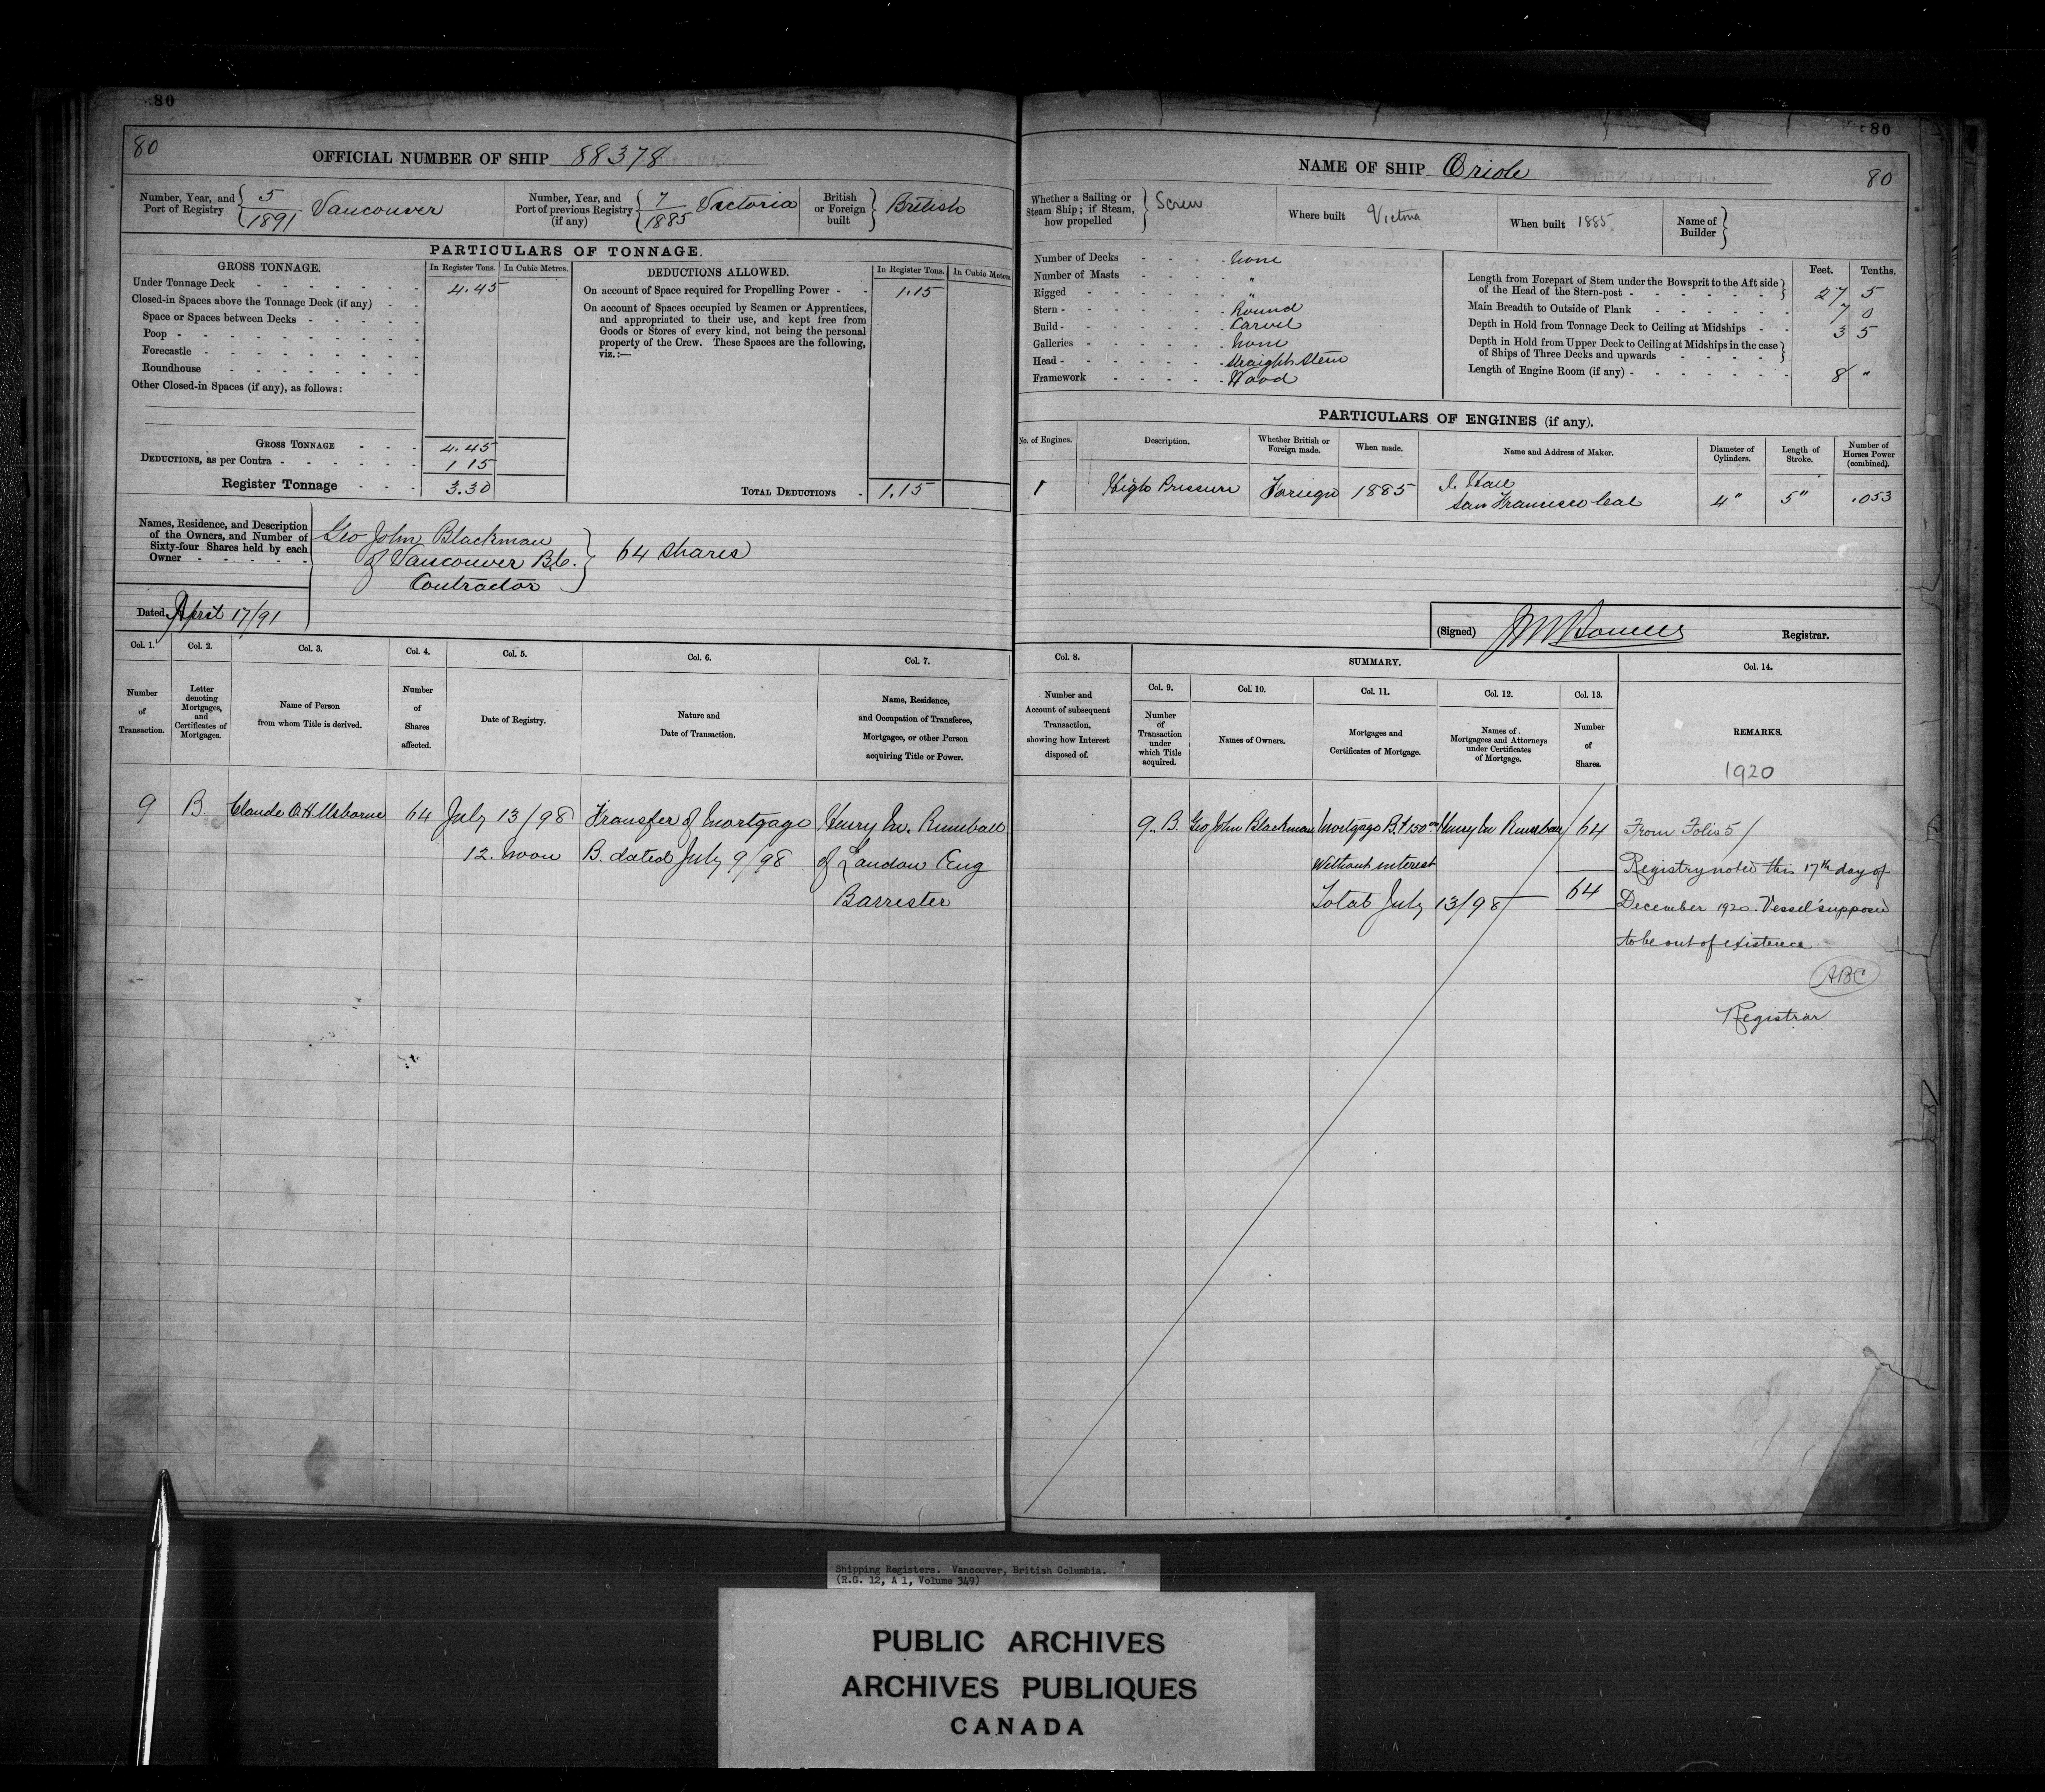 80
80
OFFICIAL NUMBER OF SHIP 88378
Number, Year, and Port of Registry 5/1891 Vancouver
Number, Year, and Port of previous Registry (if any) 7/1885 Victoria
British or Foreign built British
PARTICULARS OF TONNAGE.
GROSS TONNAGE. In Register Tons. In Cubic Metres.
Under Tonnage Deck 4.45
Closed-in Spaces above the Tonnage Deck (if any)
Space or Spaces between Decks
Poop
Forecastle
Roundhouse
Other Closed-in Spaces (if any), as follows:
GROSS TONNAGE 4.45
DEDUCTIONS, as per Contra 1 15
Register Tonnage 3.30
DEDUCTIONS ALLOWED. In Register Tons. In Cubic Metres
On account of Space required for Propelling Power 1.15
On account of Spaces occupied by Seamen or Apprentices,
and appropriated to their use, and kept free from
Goods or Stores of every kind, not being the personal
property of the Crew. These Spaces are the following,
viz.:—
TOTAL DEDUCTIONS 1.15
Names, Residence, and Description
of the Owners, and Number of
Sixty-four Shares held by each
Owner
Geo John Blackman
of Vancouver B.C. 64 shares
Contractor
Dated April 17/91
Col. 1. Col. 2. Col. 3. Col. 4. Col. 5. Col. 6. Col. 7.
Number of Transaction.
Letter denoting Mortgages, and Certificates of Mortgages.
Name of Person from whom Title is derived.
Number of Shares affected.
Date of Registry.
Nature and Date of Transaction.
Name, Residence, and Occupation of Transferee, Mortgagee, or other Person acquiring Title or Power.
9 B. Claude O.H. Usborne 64 July 13/98 Transfer of Mortgage Henry M. Rumball
12. noon B. dated July 9/98 of London Eng
Barrister
80
NAME OF SHIP Oriole
80
Whether a Sailing or Steam Ship; if Steam, how propelled Screw
Where built Victoria
When built 1885
Name of Builder
Number of Decks none
Number of Masts "
Rigged "
Stern Round
Build Carvel
Galleries none
Head straight stem
Framework Wood
Feet. Tenths.
Length from Forepart of Stem under the Bowsprit to the Aft side of the Head of the Stern-post 27 5
Main Breadth to Outside of Plank 7 0
Depth in Hold from Tonnage Deck to Ceiling at Midships 3 5
Depth in Hold from Upper Deck to Ceiling at Midships in the case of Ships of Three Decks and upwards
Length of Engine Room (if any) 8 "
PARTICULARS OF ENGINES (if any).
No. of Engines. Description. Whether British or Foreign made. When made. Name and Address of Maker. Diameter of Cylinders. Length of Stroke. Number of Horses Power (combined).
1 High Pressure Foreign 1885 San Francisco Cal 4" 5" .053
(Signed) Registrar.
Col. 8. SUMMARY. Col. 14.
Col. 9. Col. 10. Col. 11. Col. 12. Col. 13.
Number and Account of subsequent Transaction, showing how Interest disposed of.
Number of Transaction under which Title acquired.
Names of Owners.
Mortgages and Certificates of Mortgage.
Names of Mortgagees and Attorneys under Certificates of Mortgage.
Number of Shares.
REMARKS.
1920
9. B. Geo John Blackman Mortgage B. Henry M Rumball 64 From Folio 5
Without interest
Total July 13/98 64
Registry noted this 17th day of
December 1920. Vessel supposed
to be out of existence
ABC
Registrar
Shipping Registers. Vancouver, British Columbia.
(R.G. 12, A 1, Volume 349)
PUBLIC ARCHIVES
ARCHIVES PUBLIQUES
CANADA